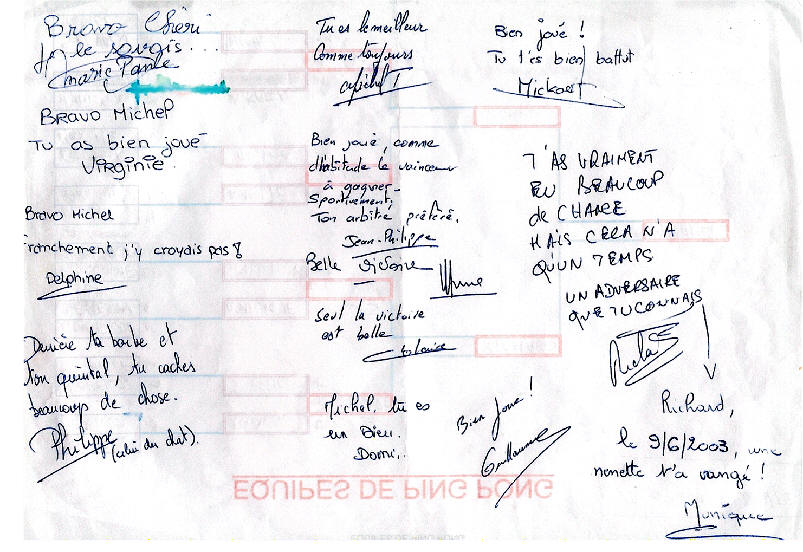 Bravo Chéri
je le savais...
Marie Paule
BRAVO Michel
Tu as bien joué
VIRGINIE.
Bravo Michel
Franchement j'y croyais pas !
Delphine
Derrière ta barbe et
ton quintal, tu caches
beaucoup de chose.
Philippe (celui du chat).
Tu es le meilleur
Comme toujours
Bien joué, comme
d'habitude le vainceur
à gagner-
Sportivement,
Ton arbitre préféré.
Jean-Philippe
Belle victoire
Seul la victoire
est belle
Michel, tu es
un Dieu.
Domi.
Bien joué !
Guillaume
Bien joué !
Tu t'es bien battut
Mickael
T'AS VRAIMENT
EU BEAUCOUP
de CHANCE
MAIS CELA N'A
QU'UN TEMPS
UN ADVERSAIRE
QUE TU CONNAIS
Richard,
le 9/6/2003, une
nénette t'a vangé !
Munique
EQUIPES DE PING PONG
EQUIPES DE PING PONG